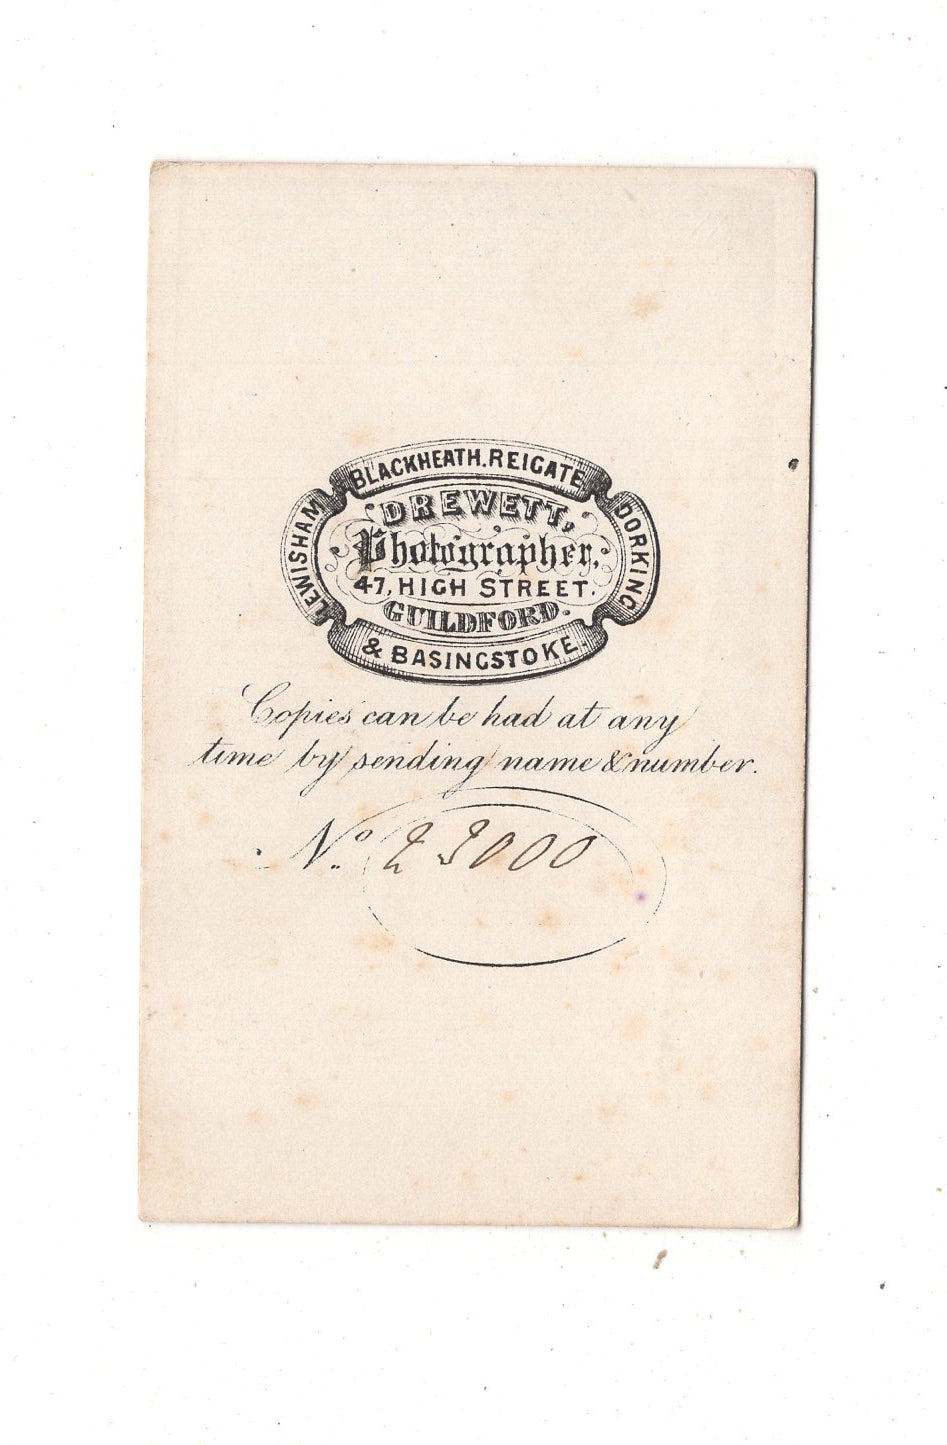 BLACKHEATH. REIGATE
LEWISHAM
DORKING
DREWETT,
Photographer,
47, HIGH STREET.
GUILDFORD.
& BASINGSTOKE.
Copies can be had at any
time by sending name & number.
No. 23000